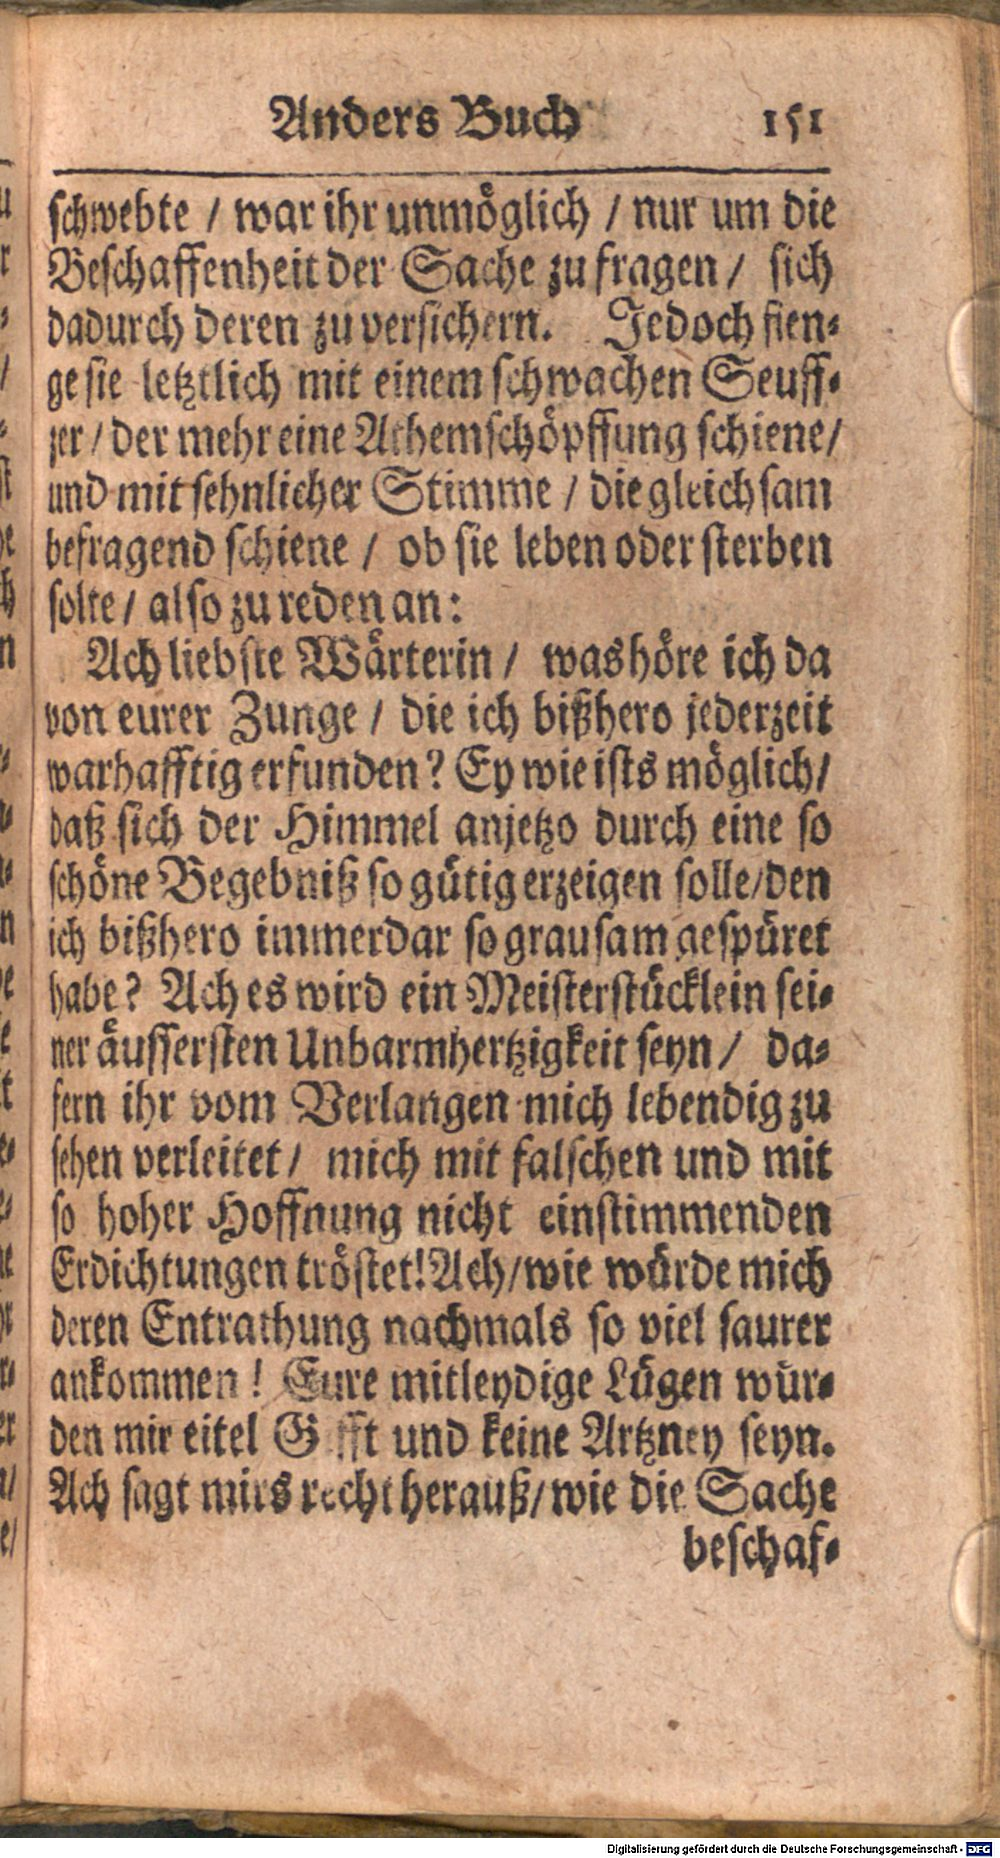 Anders Buch 151
schwebte / war ihr unmöglich / nur um die
Beschaffenheit der Sache zu fragen / sich
dadurch deren zu versichern. Jedoch fien-
ge sie letztlich mit einem schwachen Seuff-
zer / der mehr eine Athemschöpffung schiene /
und mit sehnlicher Stimme / die gleichsam
befragend schiene / ob sie leben oder sterben
solte / also zu reden an:
Ach liebste Wärterin / was höre ich da
von eurer Zunge / die ich bißhero jederzeit
warhafftig erfunden? Ey wie ists möglich /
daß sich der Himmel anjetzo durch eine so
schöne Begebniß so gütig erzeigen solle / den
ich bißhero immerdar so grausam gespüret
habe? Ach es wird ein Meisterstücklein sei-
ner äussersten Unbarmhertzigkeit seyn / da-
fern ihr vom Verlangen mich lebendig zu
sehen verleitet / mich mit falschen und mit
so hoher Hoffnung nicht einstimmenden
Erdichtungen tröstet! Ach / wie würde mich
deren Entrathung nachmals so viel saurer
ankommen! Eure mitleydige Lügen wür-
den mir eitel Gifft und keine Artzney seyn.
Ach sagt mirs recht herauß / wie die Sache
beschaf-
Digitalisierung gefördert durch die Deutsche Forschungsgemeinschaft - DFG